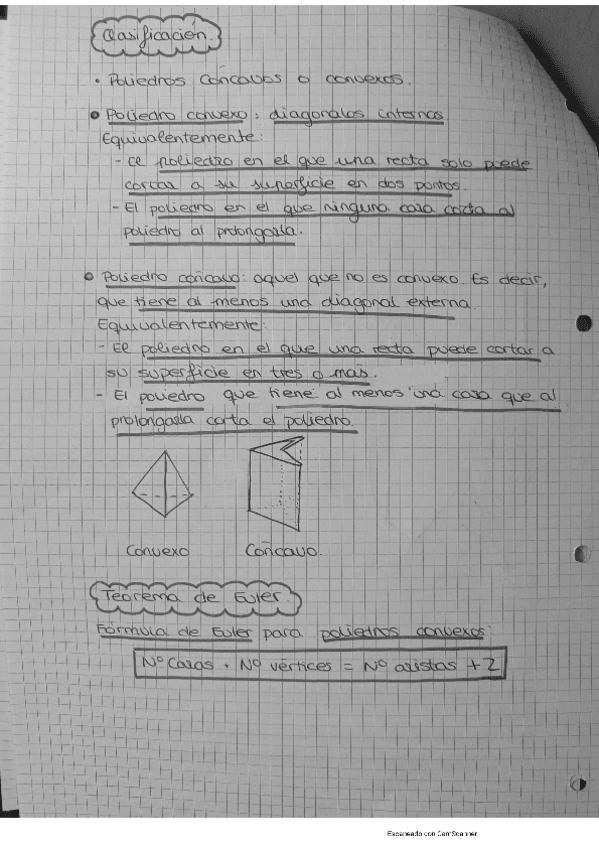 Clasificación.
• Poliedros cóncavos o convexos.
• Poliedro convexo: diagonales internas
Equivalentemente:
- El poliedro en el que una recta solo puede
cortar a su superficie en dos puntos.
- El poliedro en el que ninguna cara corta al
poliedro al prolongarla.
• Poliedro cóncavo: aquel que no es convexo. Es decir,
que tiene al menos una diagonal externa.
Equivalentemente:
- El poliedro en el que una recta puede cortar a
su superficie en tres o más.
- El poliedro que tiene al menos una cara que al
prolongarla corta el poliedro.
Convexo Cóncavo.
Teorema de Euler.
Fórmula de Euler para poliedros convexos:
Nº Caras + Nº vértices = Nº aristas + 2
Escaneado con CamScanner